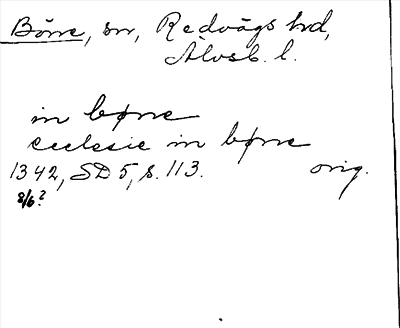 Böne, sn, Redvägs hd,
Älvsb. l.
in bøne
ecclesie in bøne
1342, SD 5, s. 113. orig.
8/6?